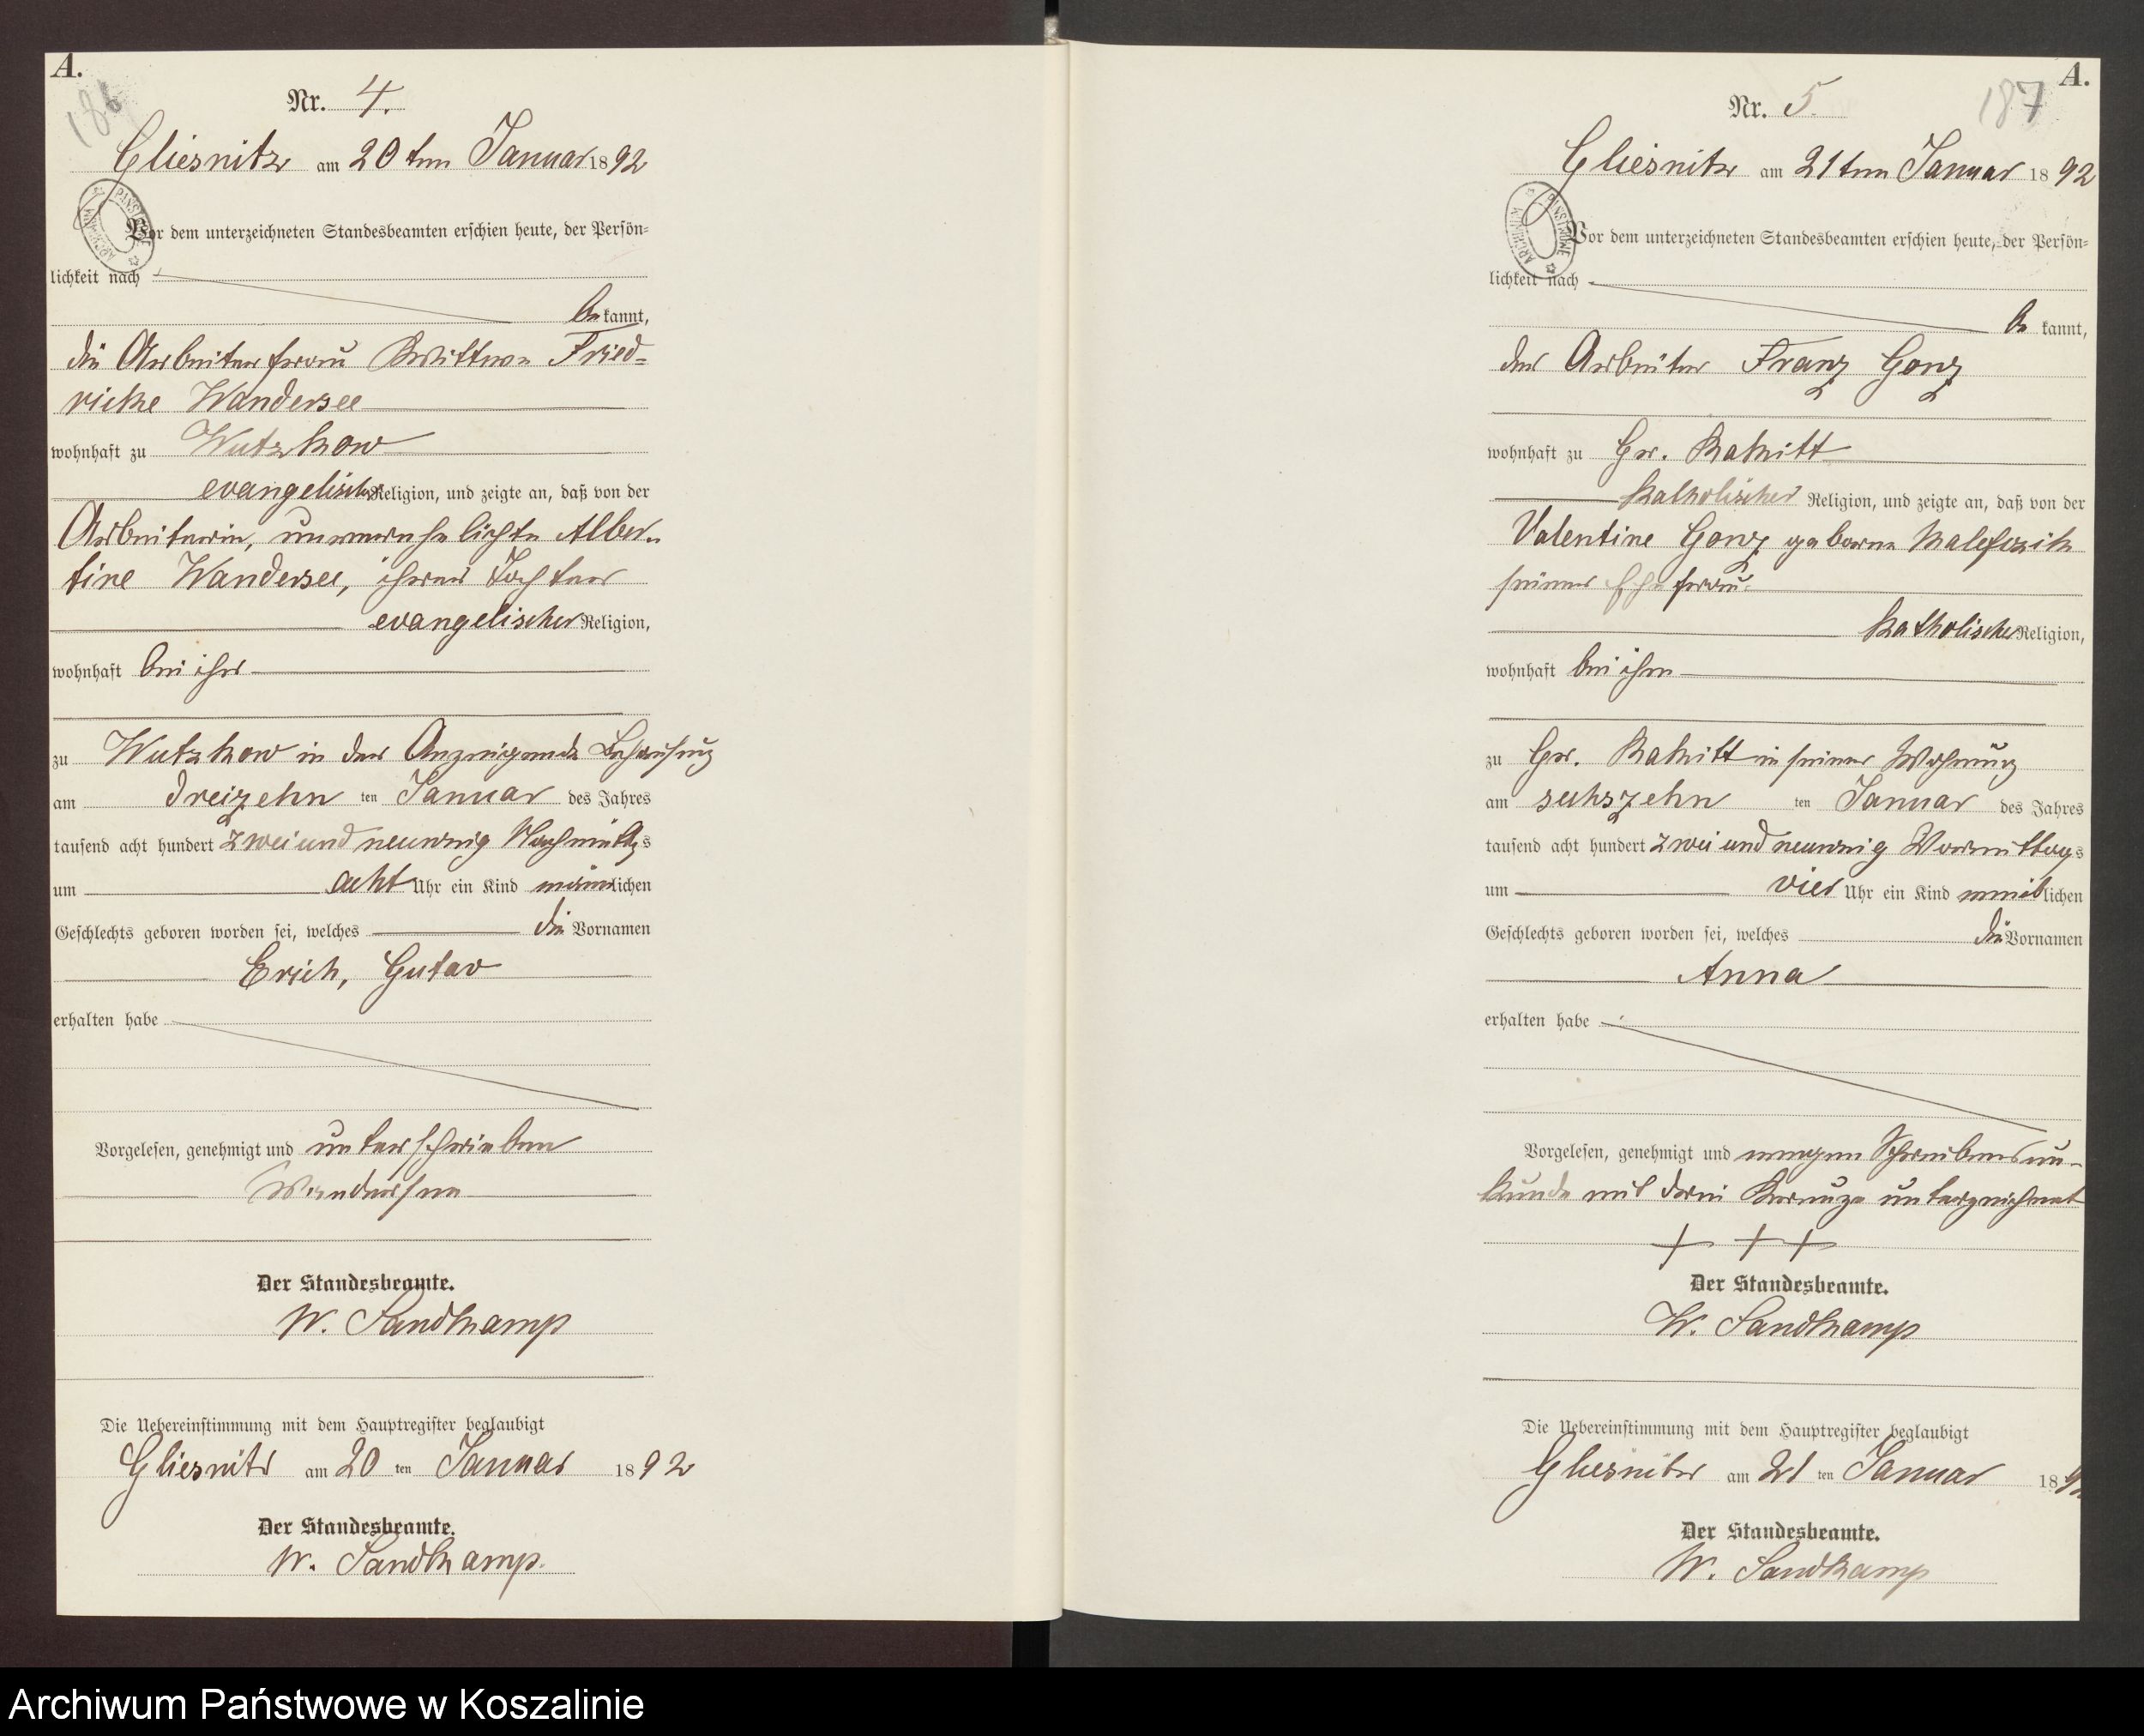 A.
186
Nr. 4.
Gliesnitz am 20ten Januar 1892
Vor dem unterzeichneten Standesbeamten erschien heute, der Persön=
lichkeit nach
be kannt,
die Arbeiterfrau Wittwe Fried=
ricke Wandersee
wohnhaft zu Wutzkow
evangelischer Religion, und zeigte an, daß von der
Arbeiterin, unverehelichte Alber-
tine Wandersee, ihrer Tochter
evangelischer Religion,
wohnhaft bei ihr
zu Wutzkow in der Anzeigende Behausung
am dreizehn ten Januar des Jahres
tausend acht hundert zwei und neunzig Nachmittags
um acht Uhr ein Kind männlichen
Geschlechts geboren worden sei, welches die Vornamen
Erich, Gustav
erhalten habe
Vorgelesen, genehmigt und unterschrieben
Wandersee
Der Standesbeamte.
W. Sandkamp
Die Uebereinstimmung mit dem Hauptregister beglaubigt
Gliesnitz am 20 ten Januar 1892
Der Standesbeamte.
W. Sandkamp.
A.
187
Nr. 5.
Gliesnitz am 21ten Januar 1892
Vor dem unterzeichneten Standesbeamten erschien heute, der Persön=
lichkeit nach
be kannt,
der Arbeiter Franz Gonz
wohnhaft zu Gr. Rakitt
katholischer Religion, und zeigte an, daß von der
Valentine Gonz geborne Malefczik
seiner Ehefrau
katholischer Religion,
wohnhaft bei ihm
zu Gr. Rakitt in seiner Wohnung
am sechszehn ten Januar des Jahres
tausend acht hundert zwei und neunzig Vormittags
um vier Uhr ein Kind weiblichen
Geschlechts geboren worden sei, welches die Vornamen
Anna
erhalten habe
Vorgelesen, genehmigt und wegen Schreibensun-
kunde mit drei Kreuze unterzeichnet
+ + +
Der Standesbeamte.
W. Sandkamp
Die Uebereinstimmung mit dem Hauptregister beglaubigt
Gliesnitz am 21 ten Januar 1892
Der Standesbeamte.
W. Sandkamp
Archiwum Państwowe w Koszalinie